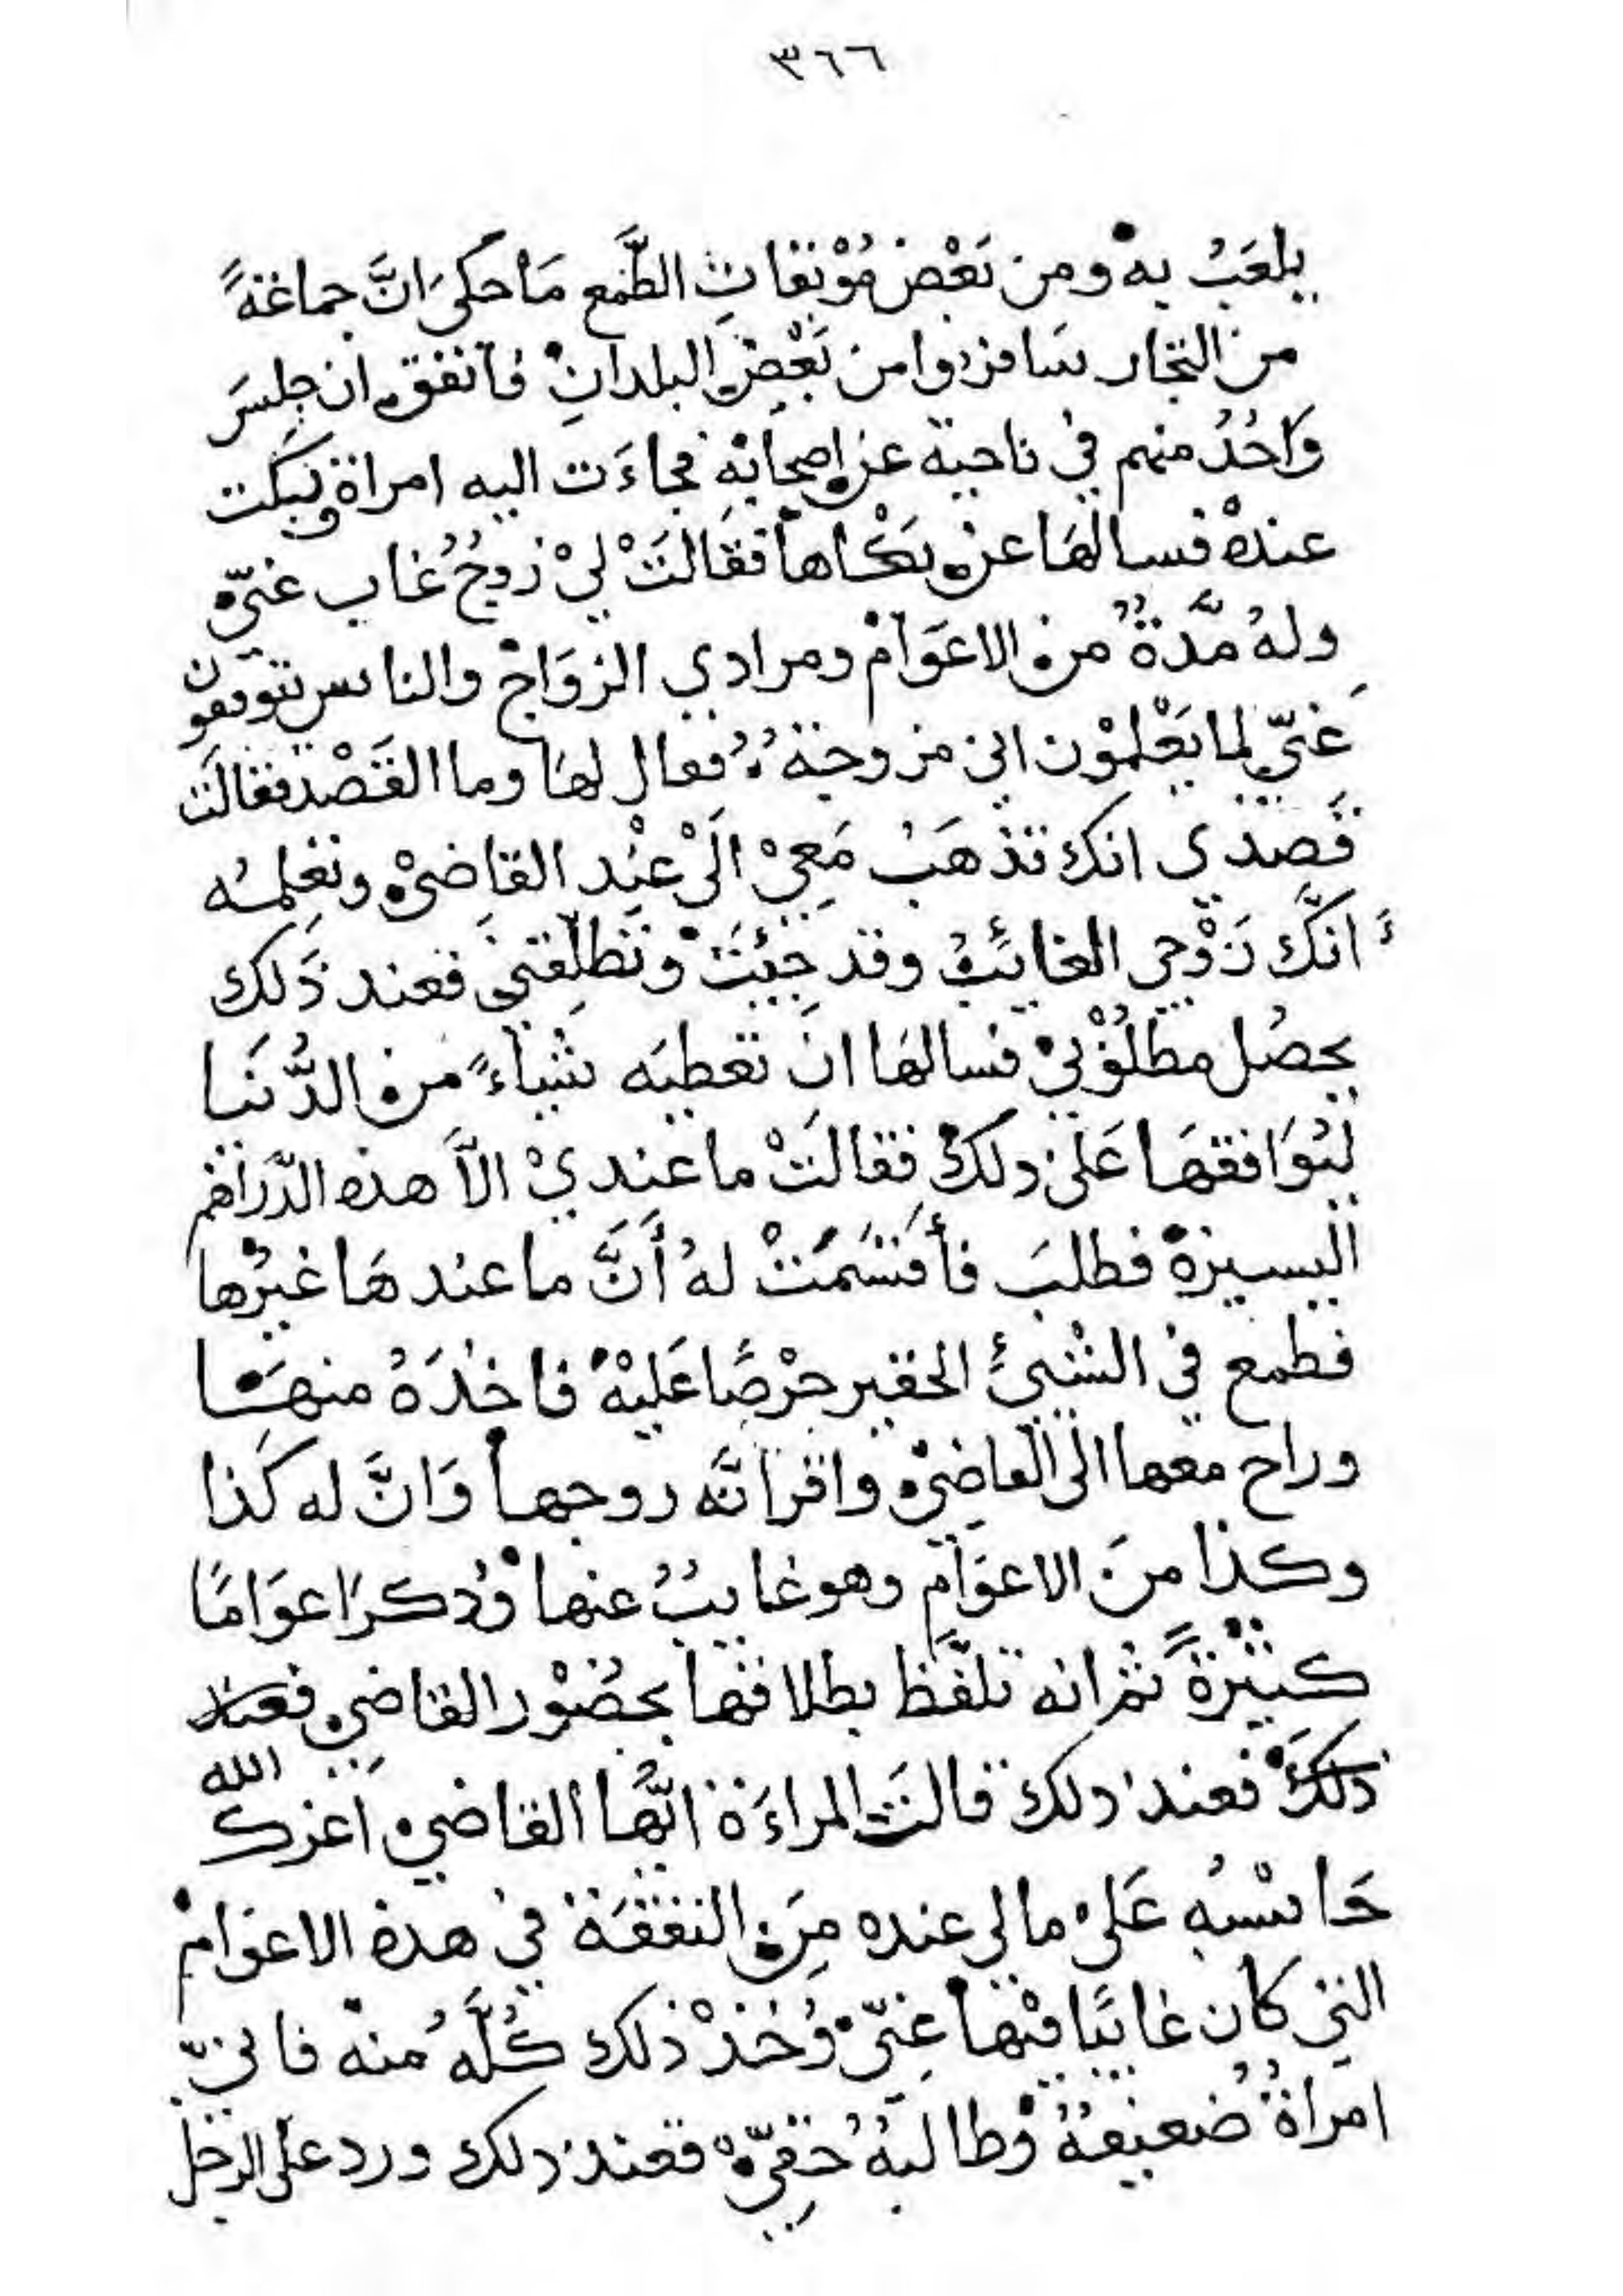 ٣٦٦
يلعَبُ به ومن بَعْض مُوْبقاتِ الطَّمع مَا حكىَ انَّ جماعَةً
من التجار سَافروا من بَعْضِ البلدانِ فاتفق ان جلسَ
وَاحُدُ منهم في ناحية عن اصحابه فجاءَت اليه امراة وبَكت
عنده فسالهَا عن بكاها فقالَتْ ليْ زوجُ غاب عنيّ
ولهُ مدَّةُ من الاعوَامْ ومرادي الزوَاجْ والناس يتوقفون
عَنيّ لما يَعْلموْن اني مزوجة فقال لهَا وما القَصْد فقالَت
قَصدي انك تذهَبْ مَعِيْ الَىْ عنْد القاضيْ وتعلمه
انَّك زَوْجي الغائبُ وقد جِئْتَ وتطلِّقني فعند ذَلك
يحصُل مطلُوْبيْ فسالهَا ان تعطيَه شْياءً من الدُّنيَا
ليُوَافقهَا عَلى ذلك فقالَتْ ما عنديْ الاَّ هذه الدَّراهم
اليسيرة فطلبَ فأقسَمَتْ لهُ أنَّ ما عندهَا غيرها
فطمع في الشْيئ الحقير حرْصًا عَليْه فاخذَهُ منهَا
وراح معها الى القاضيْ واقر انَّه زوجها وَانَّ له كَذا
وكذا منَ الاعوَام وهو غايبُ عنها وذكرَ اعوَامًا
كثيْرةً ثم انه تلفَّظ بطلاقها بحضُوْر القاضي فعند
ذلكَ فعند ذلك قالَت المراءَة ايُّها القاضي اعزك الله
حَاسْبه عَلىْ مالي عنده مِنَ النفقَة فيْ هذه الاعوَامْ
التي كان غايبًا فيْها عنيّ وُخذْ ذلك كُلَّهُ منه فانيّ
امراةُ ضعيفةُ وطالبهُ حقيّ فعند ذلك ورد على الرجل